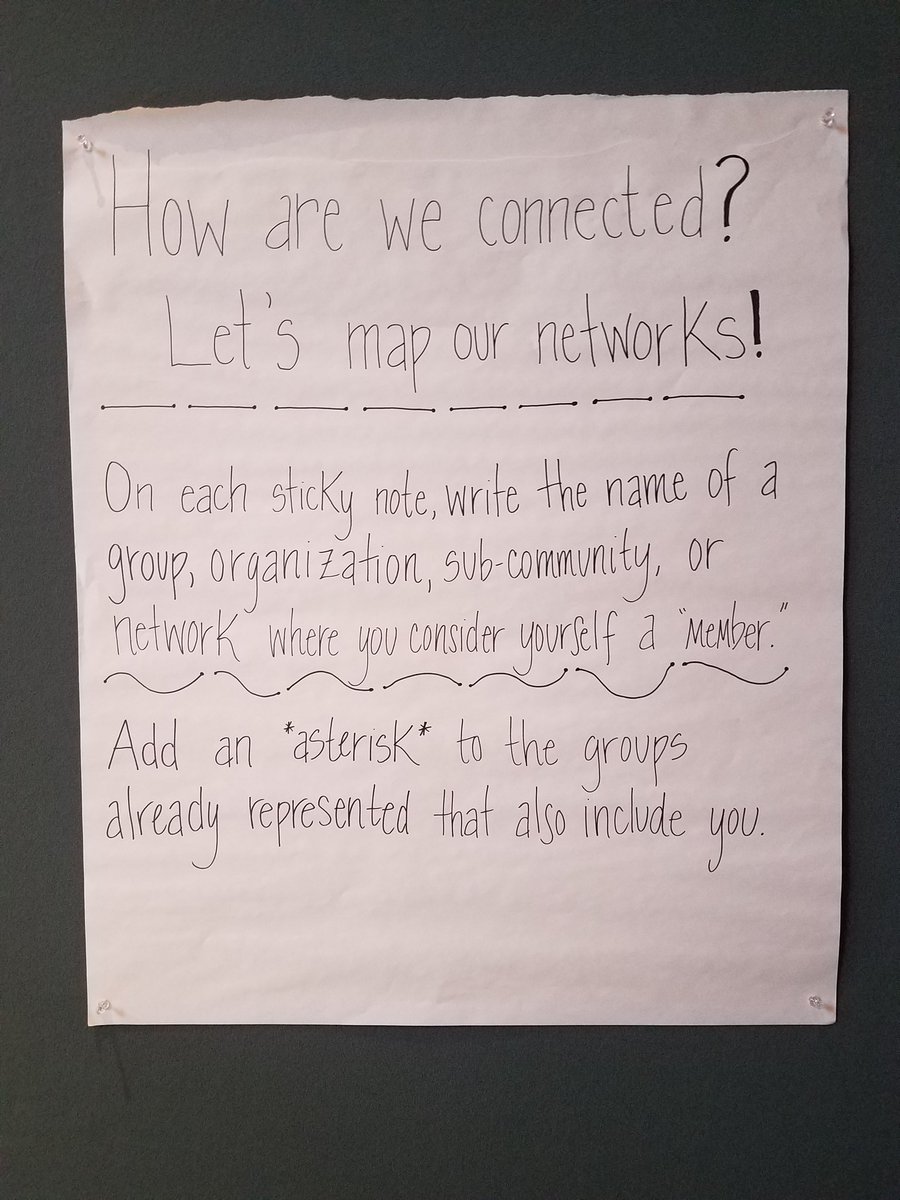 How are we connected?
Let's map our networks!
On each sticky note, write the name of a
group, organization, sub-community, or
network where you consider yourself a "member."
Add an *asterisk* to the groups
already represented that also include you.